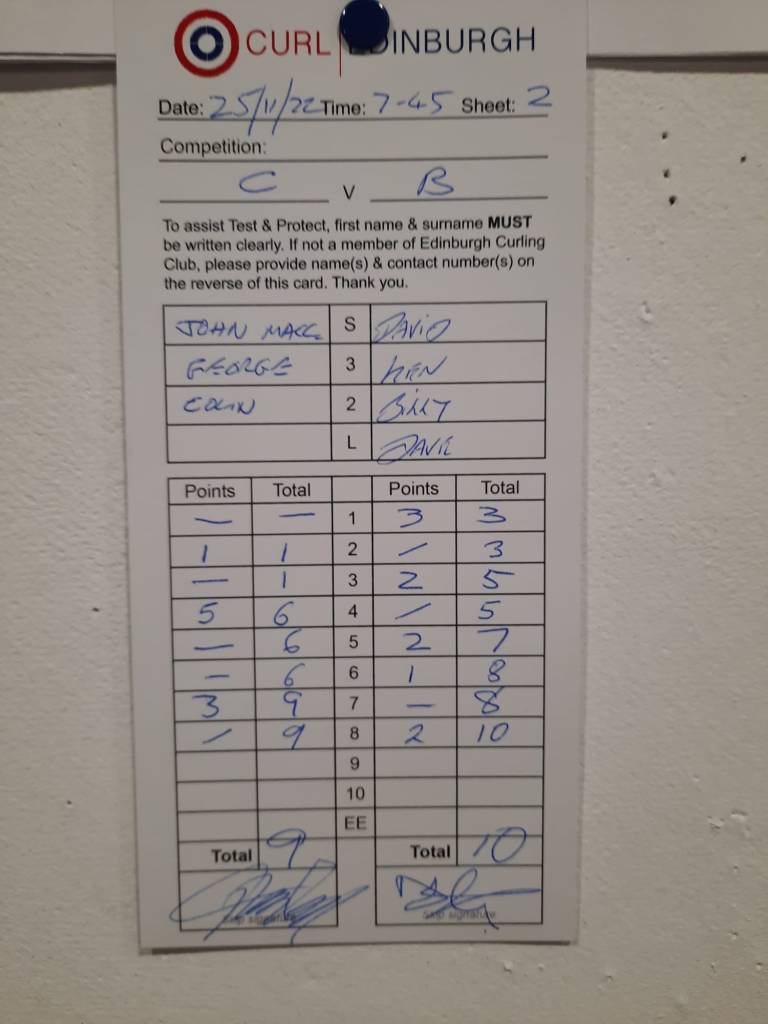 CURL EDINBURGH
Date: 25/11/22 Time: 7-45 Sheet: 2
Competition:
C V B
To assist Test & Protect, first name & surname MUST
be written clearly. If not a member of Edinburgh Curling
Club, please provide name(s) & contact number(s) on
the reverse of this card. Thank you.
JOHN MACC. S DAVID
GEORGE 3 KEN
COLIN 2 BILLY
L DAVE
Points Total Points Total
— — 1 3 3
1 1 2 / 3
— 1 3 2 5
5 6 4 / 5
— 6 5 2 7
— 6 6 1 8
3 9 7 — 8
/ 9 8 2 10
9
10
EE
Total 9 Total 10
Skip signature Skip signature